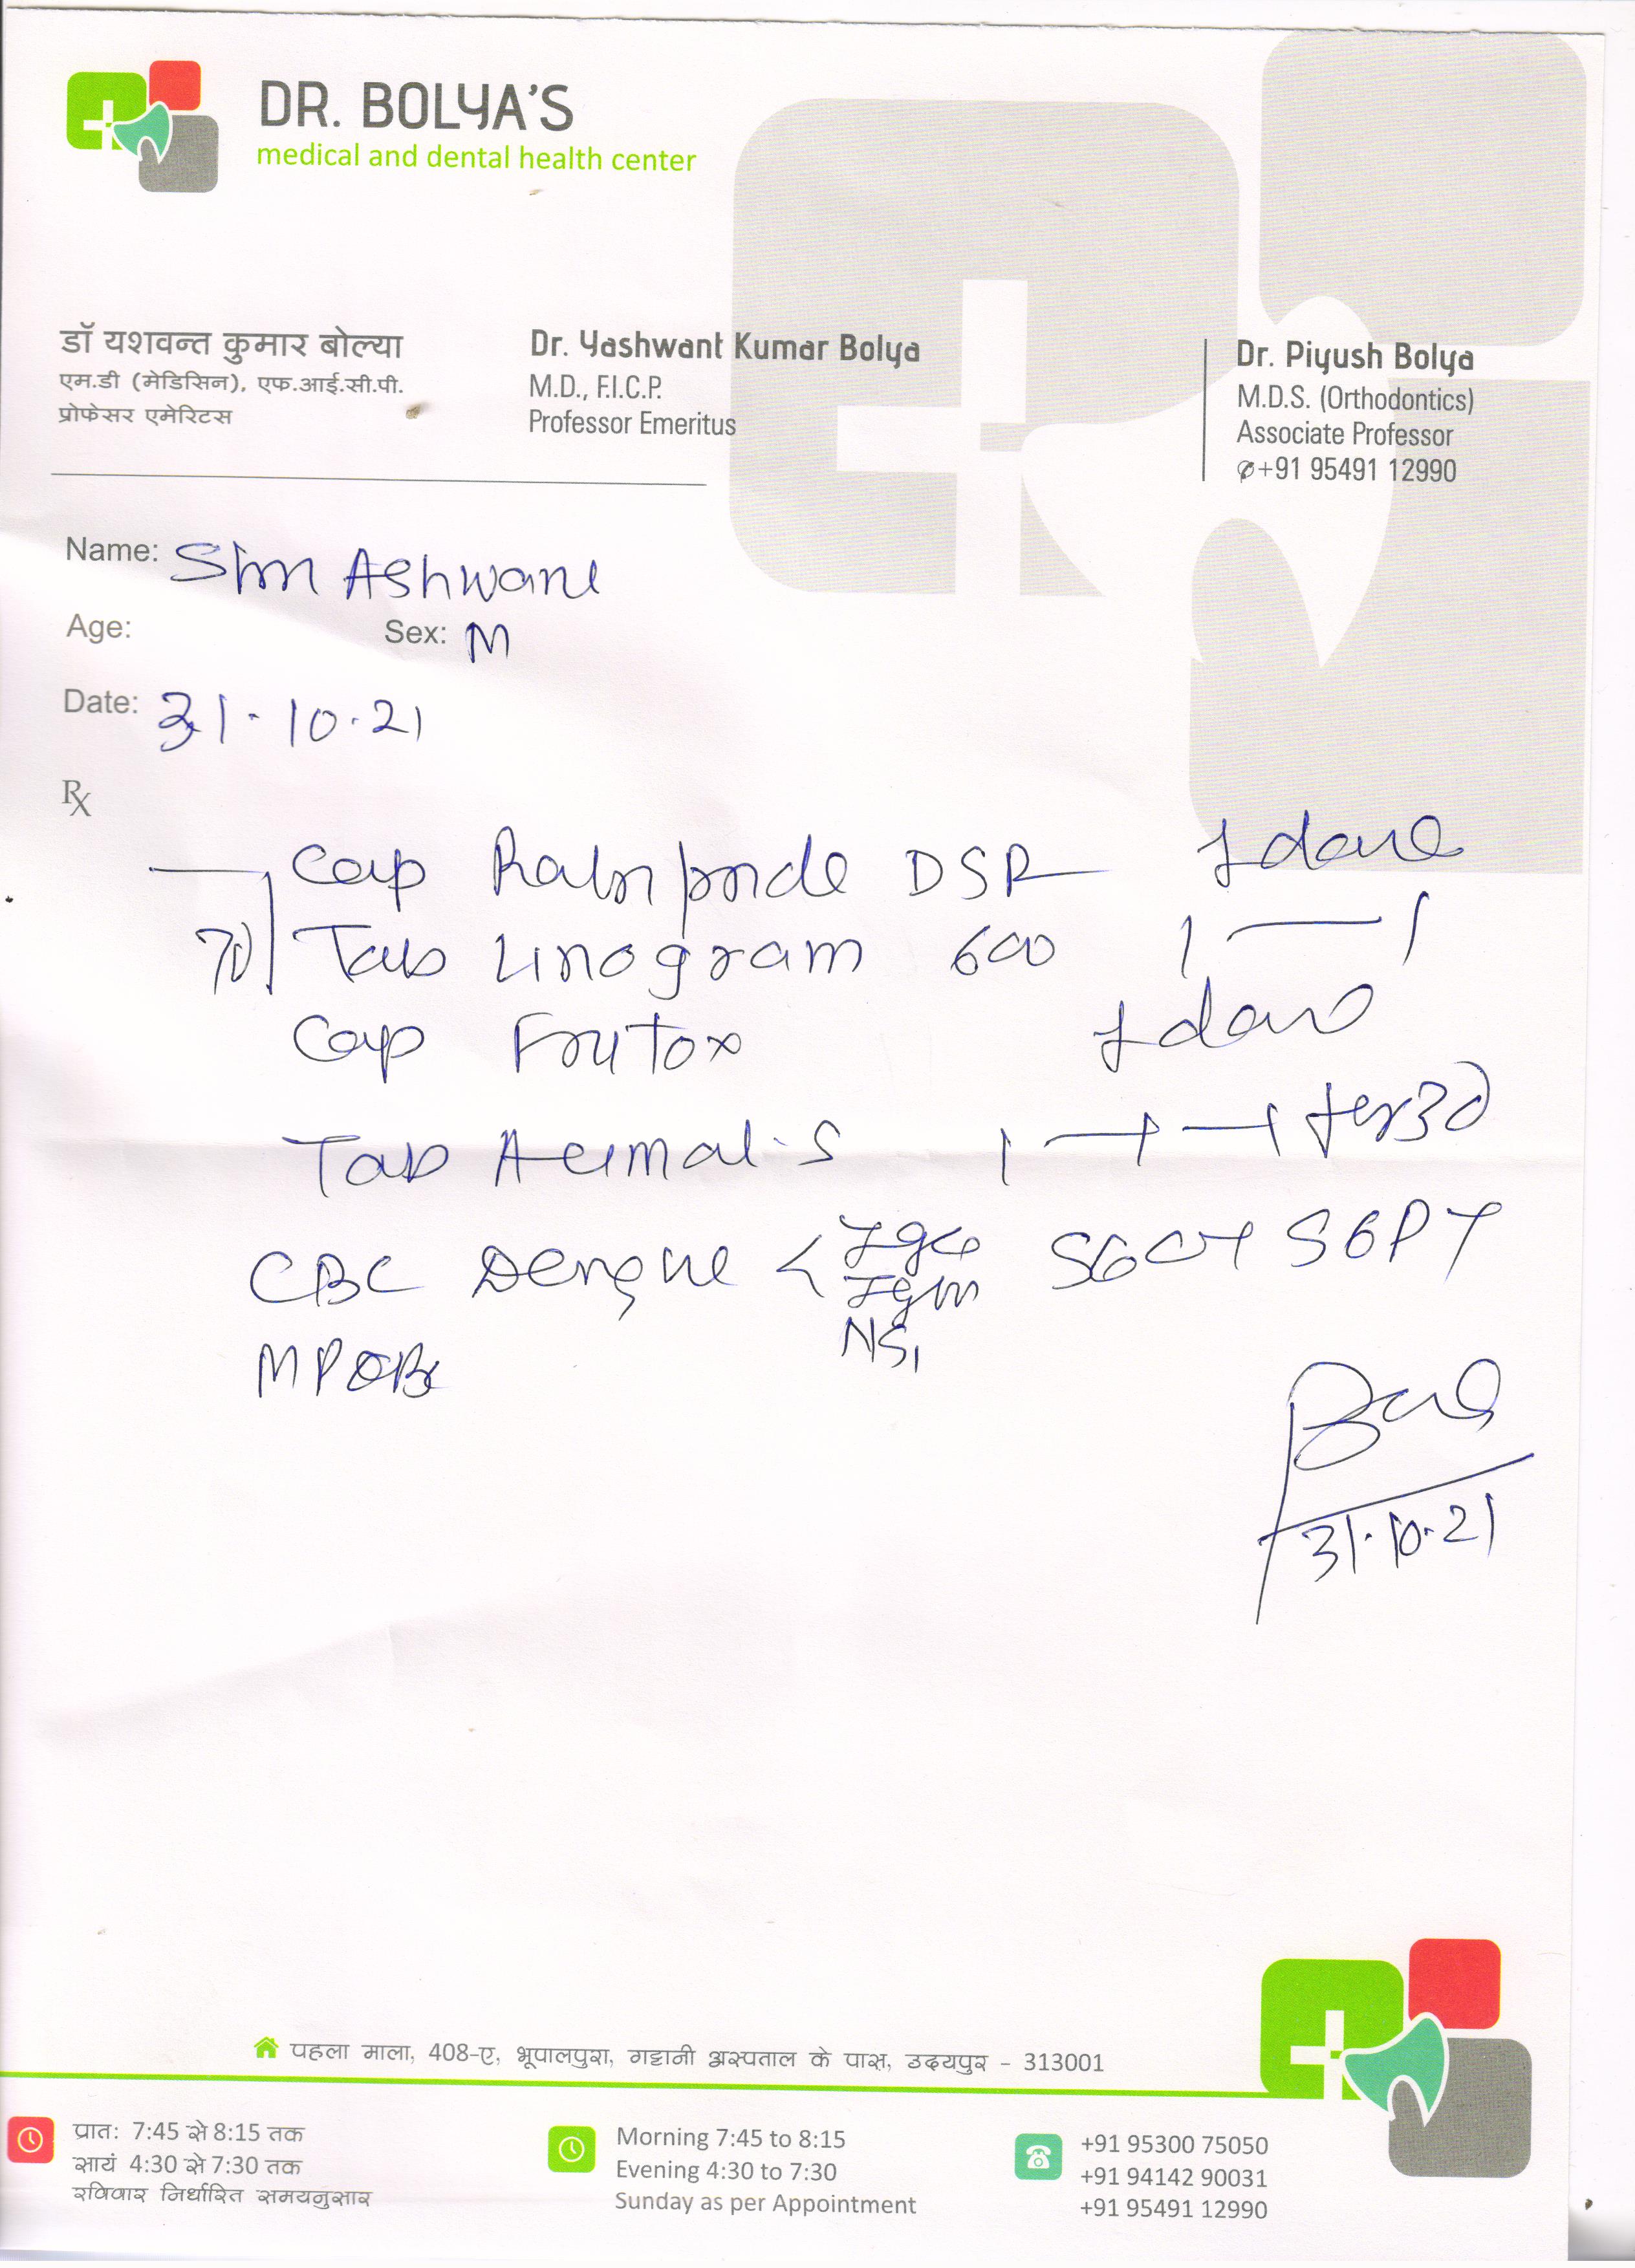 DR. BOLYA'S
medical and dental health center
डॉ यशवन्त कुमार बोल्या
एम.डी (मेडिसिन), एफ.आई.सी.पी.
प्रोफेसर एमेरिटस
Dr. Yashwant Kumar Bolya
M.D., F.I.C.P.
Professor Emeritus
Dr. Piyush Bolya
M.D.S. (Orthodontics)
Associate Professor
✆+91 95491 12990
Name: Ashwani
Age: Sex: M
Date: 31-10-21
Rx
Cap DSR
Tab Linogram 600 1 — 1
Cap
Tab
CBC Dengue < IgG SGOT SGPT
IgM
NS1
31-10-21
पहला माला, 408-ए, भूपालपुरा, गट्टानी अस्पताल के पास, उदयपुर - 313001
प्रातः 7:45 से 8:15 तक
सायं 4:30 से 7:30 तक
रविवार निर्धारित समयनुसार
Morning 7:45 to 8:15
Evening 4:30 to 7:30
Sunday as per Appointment
+91 95300 75050
+91 94142 90031
+91 95491 12990